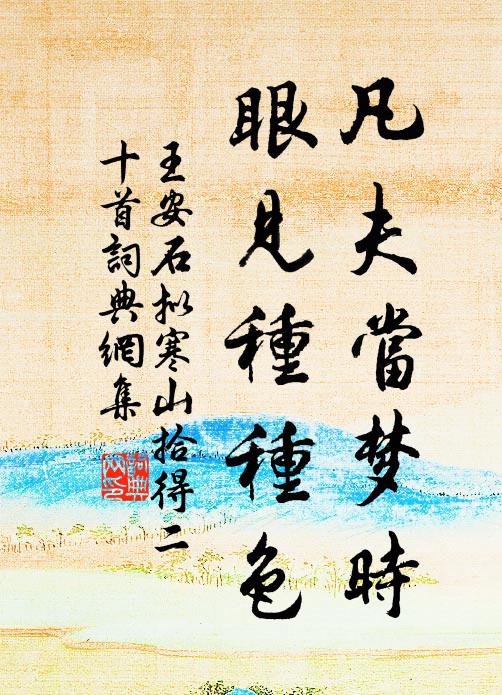 凡夫當梦時
眼見種種色
王安石拟寒山拾得二
十首詞典網集